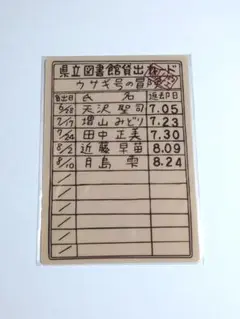 県立図書館貸出カード
ウサギ号の冒険
貸出日 氏名 返却日
天沢聖司 7.05
7/17 増山みどり 7.23
7/24 田中正美 7.30
8/2 近藤早苗 8.09
8/10 月島雫 8.24